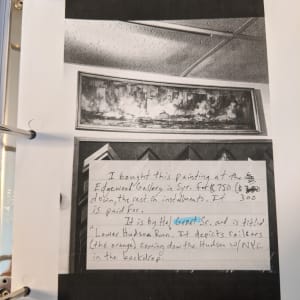 I bought this painting at the
Edgewood Gallery in Syr. for $750 ($
down, the rest in installments. It 300
is paid for.
It is by Hal Sr. and is titled
"Lower Hudson Run". It depicts
(the orange) coming down the Hudson w/ NYC
in the backdrop.